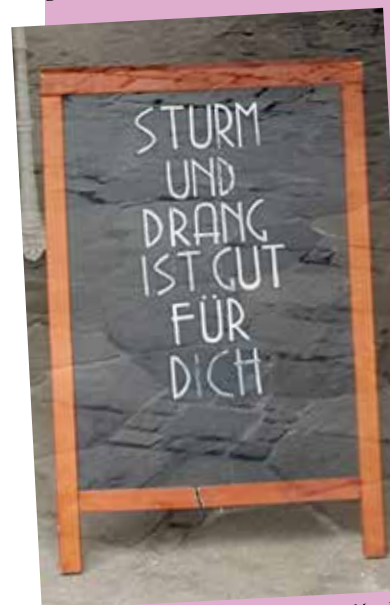 STURM
UND
DRANG
IST GUT
FÜR
DICH